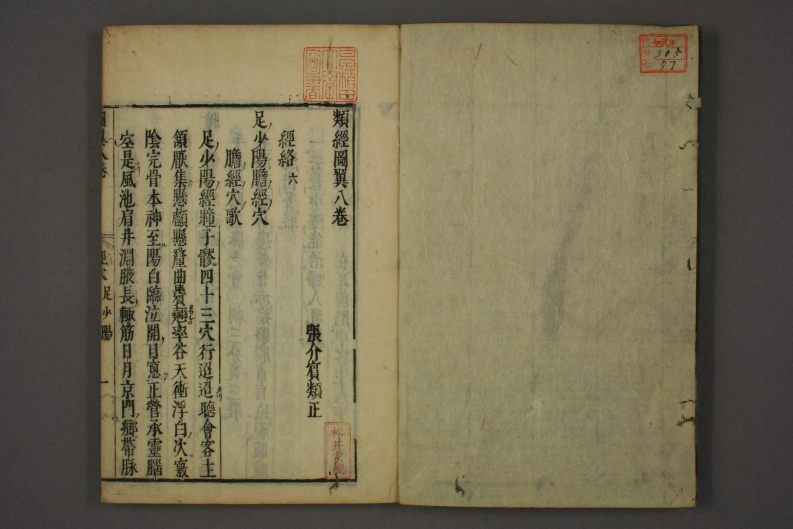 類經圖翼八卷
張介賓類正
經絡六
足少陽膽經穴
膽經穴歌
足少陽經瞳子髎四十三穴行迢迢聽會客主
頷厭集懸顱懸釐曲鬢翹率谷天衝浮白次竅
陰完骨本神至陽白臨泣開目窻正營承靈腦
空是風池肩井淵腋長輒筋日月京門鄉帶脉
經穴 足少陽 一
205
37